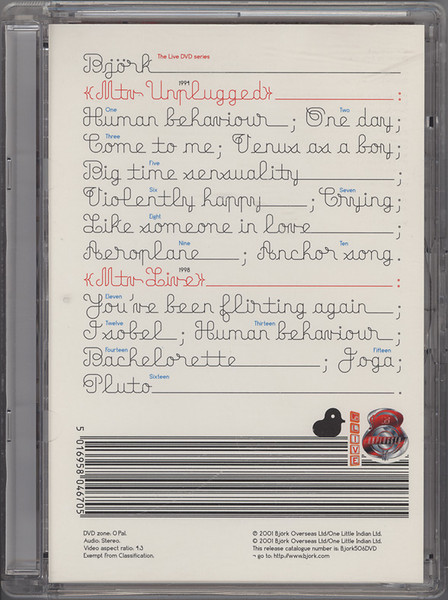 The Live DVD series
Björk
1994
«Mtv Unplugged» :
One Two
Human behaviour ; One day;
Three
Come to me; Venus as a boy;
Five
Big time sensuality
Six Seven
Violently happy ; Crying;
Eight
Like someone in love ;
Nine Ten
Aeroplane ; Anchor song.
1998
«Mtv Live» :
Eleven
You've been flirting again ;
Twelve Thirteen
Isobel ; Human behaviour ;
Fourteen Fifteen
Bachelorette ; Joga;
Sixteen
Pluto .
LIVE
5 016958 046705
DVD zone: 0 Pal.
Audio: Stereo.
Video aspect ratio: 4:3
Exempt from Classification.
© 2001 Bjork Overseas Ltd/One Little Indian Ltd.
© 2001 Bjork Overseas Ltd/One Little Indian Ltd.
This release catalogue number is: Bjork506DVD
¬ go to: http://www.bjork.com